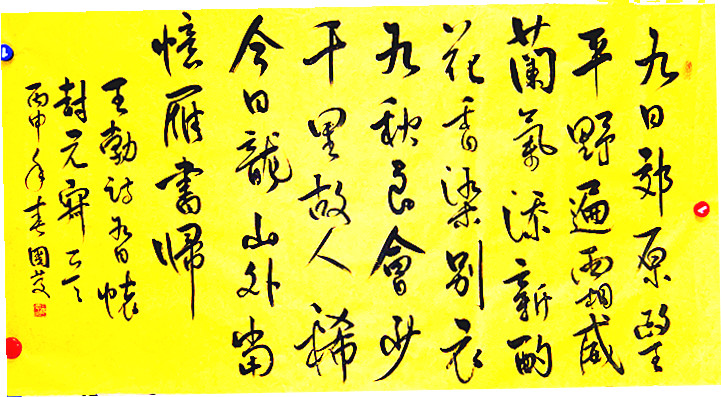 九日郊原望
平野遍霜威
蘭氣添新酌
花香染別衣
九秋良會少
千里故人稀
今日龍山外當
憶雁書歸
王勃詩九日懷
封元寂
丙申年春國